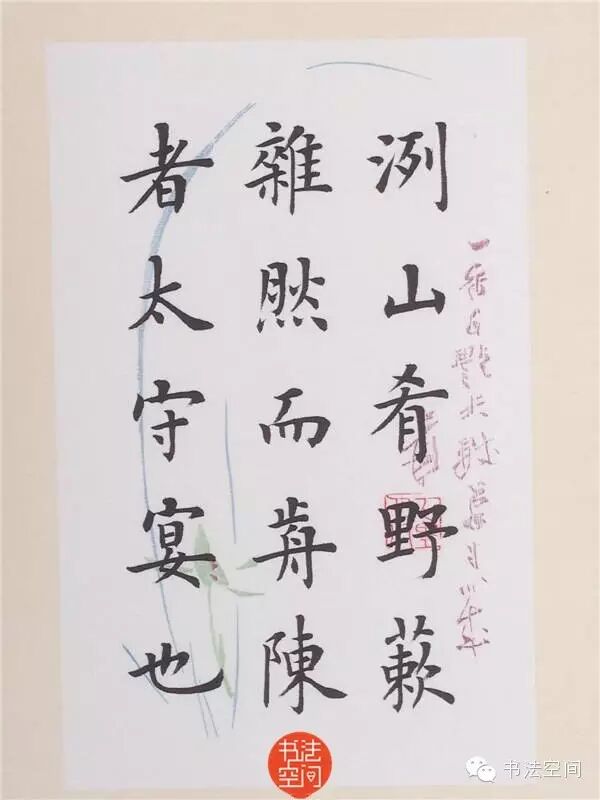 洌山肴野蔌
雜然而歬陳
者太守宴也
书法空间
书法空间